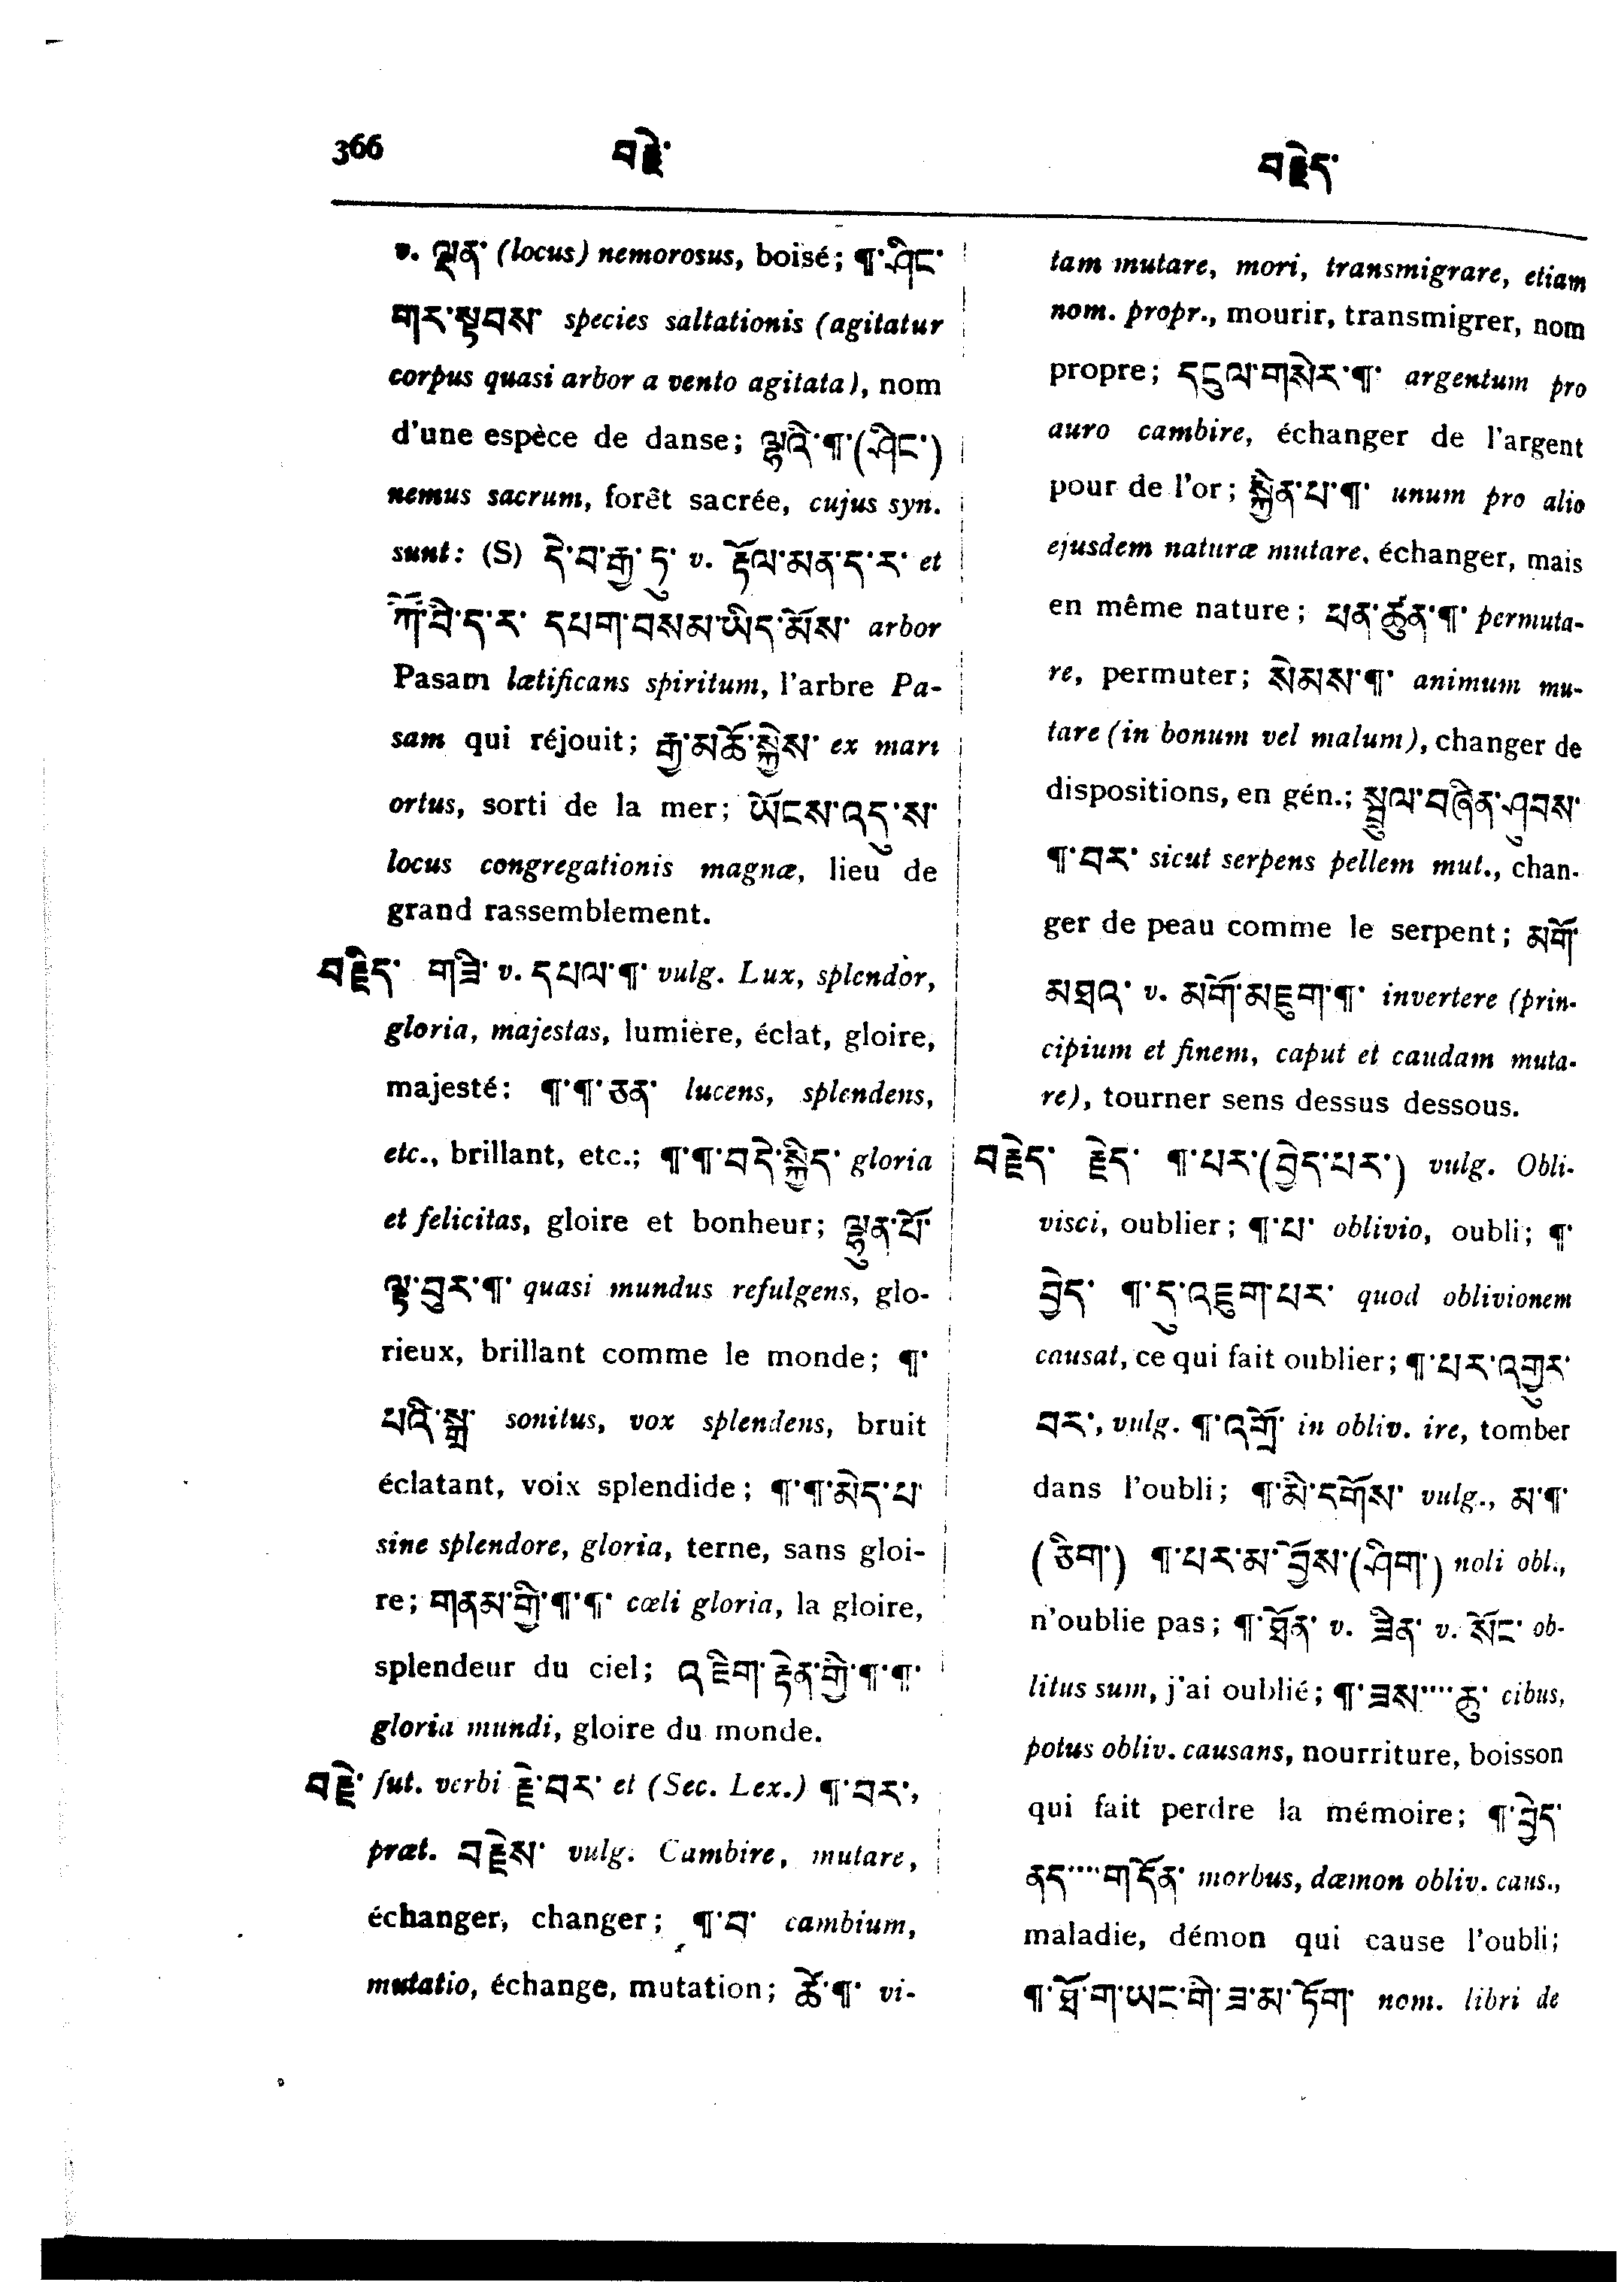 366
བརྗེ་
བརྗེད་
v. ལྡན་ (locus) nemorosus, boisé; ¶་ཤིང་
གར་སྟབས་ species saltationis (agitatur
corpus quasi arbor a vento agitata), nom
d'une espèce de danse; ལྷའི་¶་(ཤིང་)
nemus sacrum, forêt sacrée, cujus syn.
sunt: (S) དེ་བ་རྒྱ་དུ་ v. རྡོལ་མན་ད་ར་ et
ཀོ་བི་ད་ར་ དཔག་བསམ་ཡིད་མོས་ arbor
Pasam lætificans spiritum, l'arbre Pa-
sam qui réjouit; རྒྱ་མཚོ་སྐྱེས་ ex mari
ortus, sorti de la mer; ཡོངས་འདུ་ས་
locus congregationis magnæ, lieu de
grand rassemblement.
བརྗིད་ གཟི་ v. དཔལ་¶་ vulg. Lux, splendor,
gloria, majestas, lumière, éclat, gloire,
majesté: ¶་¶་ཅན་ lucens, splendens,
etc., brillant, etc.; ¶་¶་བདེ་སྐྱིད་ gloria
et felicitas, gloire et bonheur; ལྷུན་པོ་
ལྟ་བུར་¶་ quasi mundus refulgens, glo-
rieux, brillant comme le monde; ¶་
པའི་སྒྲ་ sonitus, vox splendens, bruit
éclatant, voix splendide; ¶་¶་མེད་པ་
sine splendore, gloria, terne, sans gloi-
re; གནམ་གྱི་¶་¶་ cœli gloria, la gloire,
splendeur du ciel; འཇིག་རྟེན་གྱི་¶་¶་
gloria mundi, gloire du monde.
བརྗེ་ fut. verbi རྗེ་བར་ et (Sec. Lex.) ¶་བར་,
præt. བརྗེས་ vulg. Cambire, mutare,
échanger, changer; ¶་བ་ cambium,
mutatio, échange, mutation; ཚེ་¶་ vi-
tam mutare, mori, transmigrare, etiam
nom. propr., mourir, transmigrer, nom
propre; དངུལ་གསེར་¶་ argentum pro
auro cambire, échanger de l'argent
pour de l'or; སྐྱིན་པ་¶་ unum pro alio
ejusdem naturæ mutare, échanger, mais
en même nature; ཕན་ཚུན་¶་ permuta-
re, permuter; སེམས་¶་ animum mu-
tare (in bonum vel malum), changer de
dispositions, en gén.; སྦྲུལ་བཞིན་ཤུབས་
¶་བར་ sicut serpens pellem mut., chan-
ger de peau comme le serpent; མགོ་
མཐའ་ v. མགོ་མཇུག་¶་ invertere (prin-
cipium et finem, caput et caudam muta-
re), tourner sens dessus dessous.
བརྗེད་ རྗེད་ ¶་པར་(བྱེད་པར་) vulg. Obli-
visci, oublier; ¶་པ་ oblivio, oubli; ¶་
བྱེད་ ¶་དུ་འཇུག་པར་ quod oblivionem
causat, ce qui fait oublier; ¶་པར་འགྱུར་
བར་, vulg. ¶་འགྲོ་ in obliv. ire, tomber
dans l'oubli; ¶་མི་དགོས་ vulg., མ་¶་
(ཅིག་) ¶་པར་མ་བྱོས་(ཤིག་) noli obl.,
n'oublie pas; ¶་ཐོན་ v. ཟིན་ v. སོང་ ob-
litus sum, j'ai oublié; ¶་ཟས་····ཆུ་ cibus,
potus obliv. causans, nourriture, boisson
qui fait perdre la mémoire; ¶་བྱེད་
ནད་····གདོན་ morbus, dæmon obliv. caus.,
maladie, démon qui cause l'oubli;
¶་ཐོ་ག་ཡང་གི་ཟ་མ་ཏོག་ nom. libri de